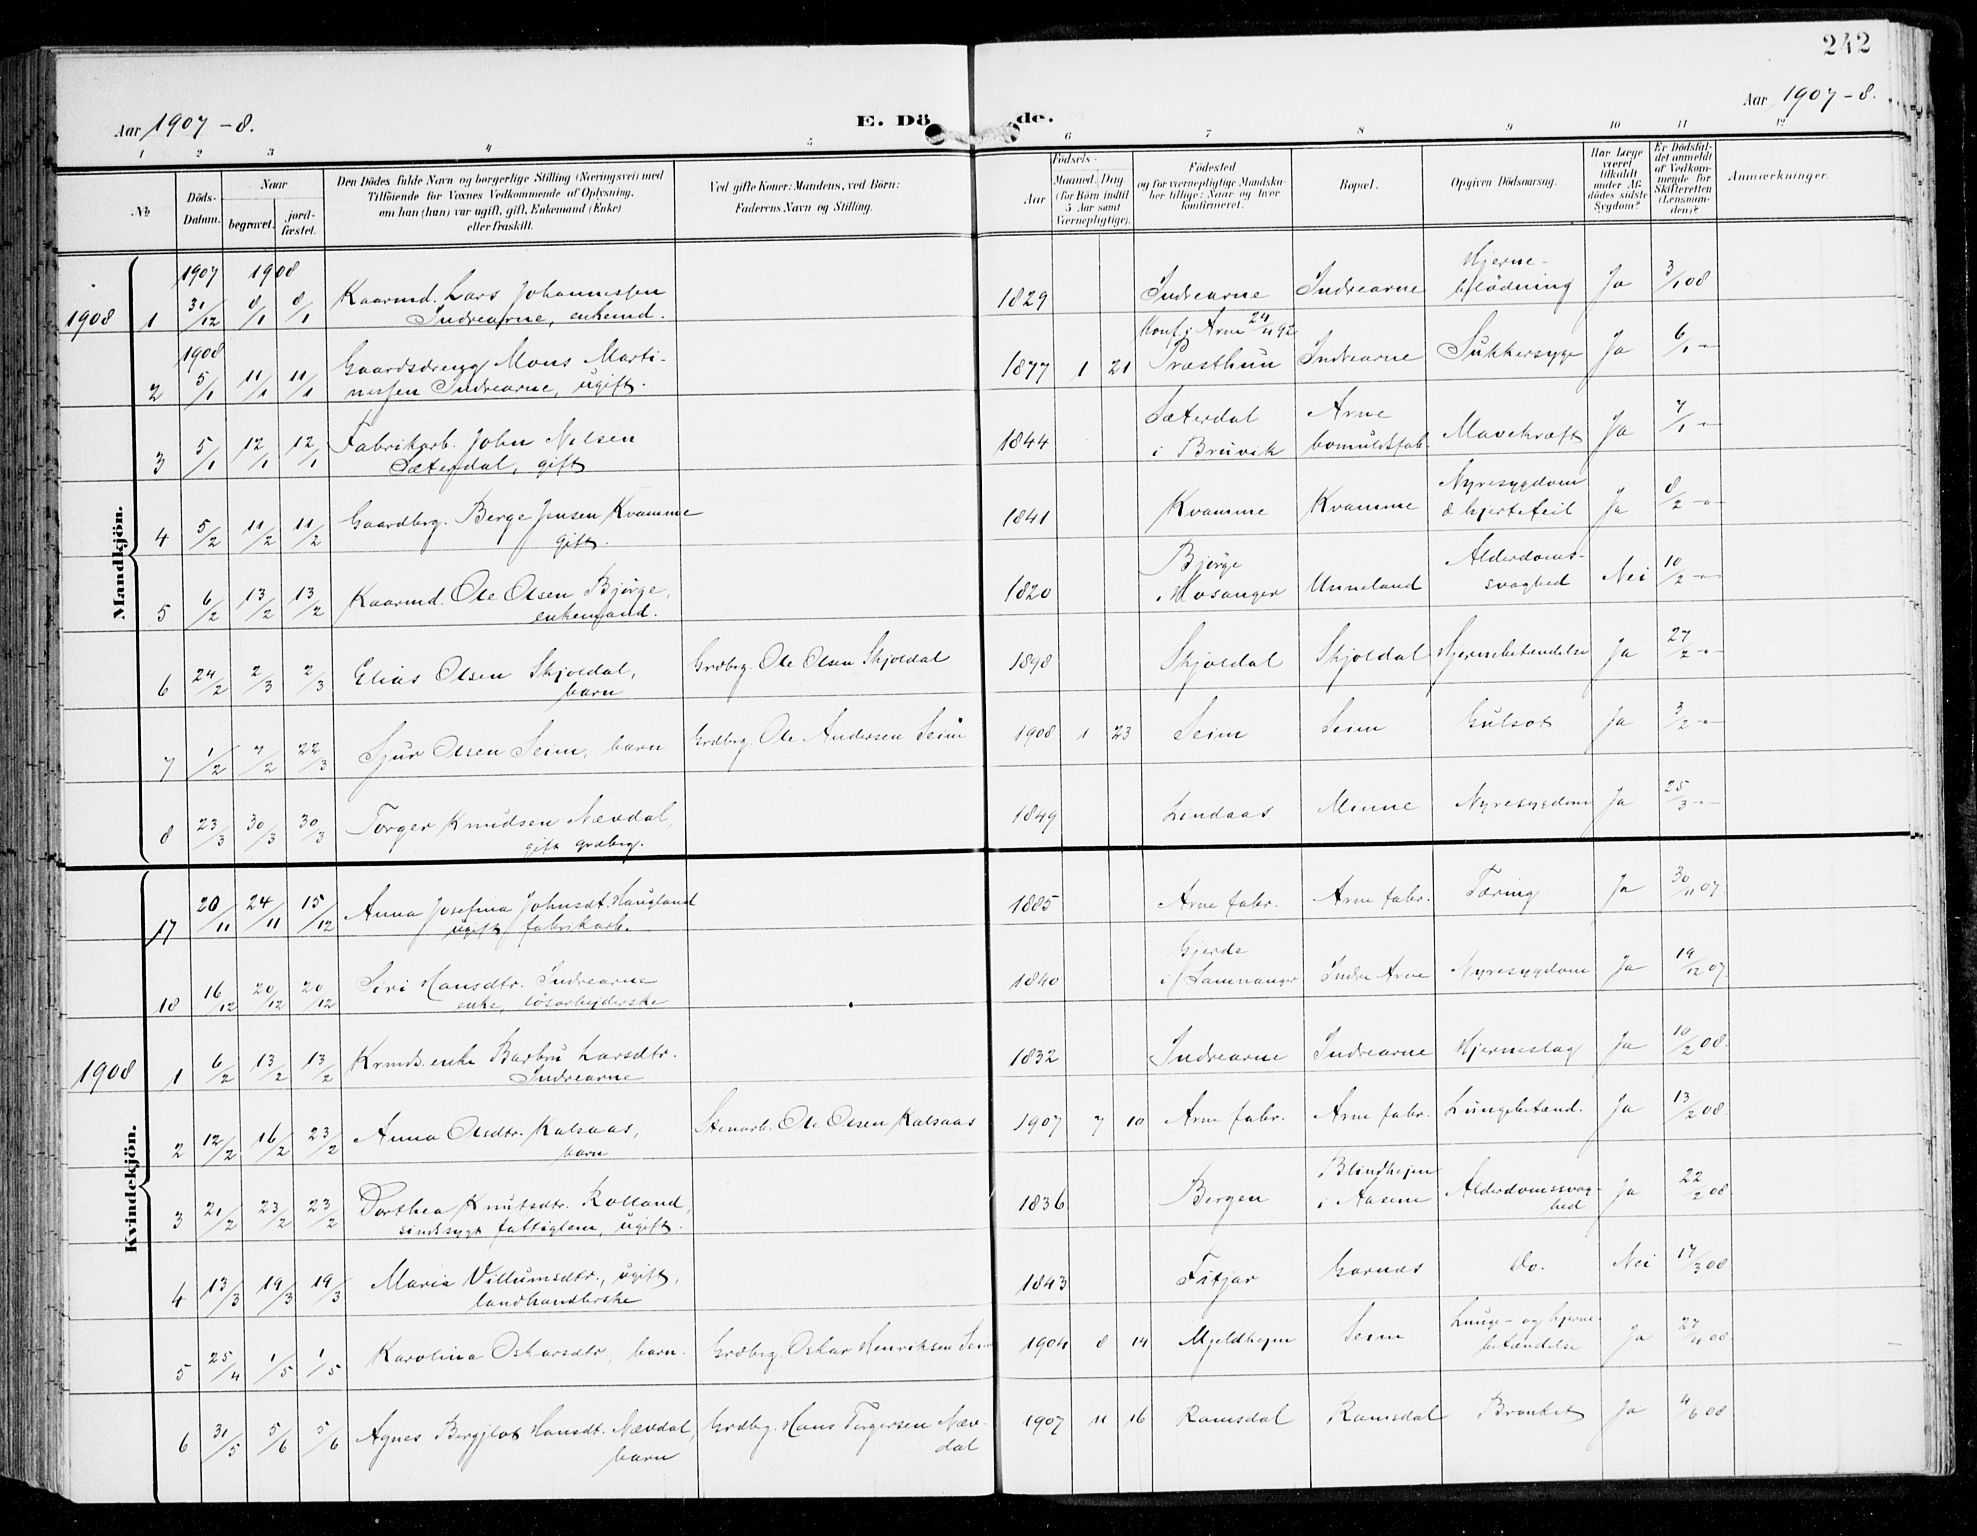 242
Aar 1907-8.
E. Dö de.
Aar 1907-8.
1 2 3 4 5 6 7 8 9 10 11 12
No
Döds-Datum.
Naar
begravet.
jord-fæstet.
Den Dödes fulde Navn og borgerlige Stilling (Næringsvei) med
Tilföiende for Voxnes Vedkommende af Oplysning,
om han (hun) var ugift, gift, Enkemand (Enke)
eller fraskilt.
Ved gifte Koner: Mandens, ved Børn:
Faderens Navn og Stilling.
Födsels-
Aar
Maaned. Dag
(for Börn indtil
5 Aar samt
Værnepligtige).
Födested
og for værnepligtige Mandskaber tillige: Naar og hvor
konfirmeret.
Bopæl.
Opgiven Dödsaarsag.
Har Læge
været
tilkaldt
under Afdödes sidste
Sygdom?
Er Dödsfaldet anmeldt
af Vedkommende for
Skifteretten
(Lensmanden)?
Anmærkninger.
Mandkjön.
1908 1 1907 31/12 1908 8/1 8/1 Kaarmd. Lars Johannessen Indrearne, enkemd. 1829 Indrearne Indrearne Hjerneblödning Ja 3/1 08
2 1908 5/1 11/1 11/1 Gaardsdreng Mons Martinessen Indrearne, ugift. 1877 1 21 Konf. i Arne 24/4 92 Præsthun Indrearne Sukkersyge Ja 6/1 -"-
3 5/1 12/1 12/1 Fabrikarb. John Nilsen Sæterdal, gift 1844 Sæterdal i Bruvik Arne bomuldsfab. Mavekræft Ja 7/1 -"-
4 5/2 11/2 11/2 Gaardbrg. Berge Jensen Kvamme gift. 1841 Kvamme Kvamme Nyresygdom & hjertefeil Ja 8/2 -"-
5 6/2 13/2 13/2 Kaarmd. Ole Olsen Bjørge, enkemand. 1820 Bjørge i Mosanger Unneland Alderdomssvaghed Nei 10/2 -"-
6 24/2 2/3 2/3 Elias Olsen Skjoldal, barn Grdbrg. Ole Olsen Skjoldal 1898 Skjoldal Skjoldal Hjernebetændelse Ja 27/2 -"-
7 1/2 7/2 22/3 Sjur Olsen Seim, barn Grdbrg. Ole Andersen Seim 1908 1 23 Seim Seim Gulsot Ja 3/2 -"-
8 23/3 30/3 30/3 Torger Knudsen Nævdal, gift grdbrg. 1849 Lindaas Minne Nyresygdom Ja 25/3 -"-
Kvindekjön.
17 20/11 24/11 15/12 Anna Josefina Johnsdt. Haugland ugift fabrikarb. 1885 Arne fabr. Arne fabr. Tæring Ja 30/11 07
18 16/12 20/12 20/12 Siri Hansdtr. Indrearne enke, løsarbejderske 1840 Gjerde i Samnanger Indre Arne Nyresygdom Ja 19/12 07
1908 1 6/2 13/2 13/2 Krmds. enke Barbru Larsdtr. Indrearne 1832 Indrearne Indrearne Hjerneslag Ja 10/2 08.
2 12/2 16/2 23/2 Anna Olsdtr. Kalsaas, barn Stenarb. Ole Olsen Kalsaas 1907 7 10 Arne fabr. Arne fabr. Lungebetænd. Ja 13/2 08
3 21/2 23/2 23/2 Dorthea Knutsdtr. Rolland, sindssygt fattiglem, ugift. 1836 Bergen Blindhejm i Aasene Alderdomssvaghed Ja 22/2 08
4 13/3 19/3 19/3 Maria Villumsdtr., ugift, landhandlerske 1843 Fitjar Garnæs Do. Nei 17/3 08
5 25/4 1/5 1/5 Karolina Oskarsdtr, barn. Grdbrg. Oskar Henriksen Seim 1904 8 14 Mjeldhejm Seim Lunge- og hjernebetændelse Ja 27/4 08
6 31/5 5/6 5/6 Agnes Bergljot Hansdt. Nævdal, barn Grdbrg. Hans Torgersen Nævdal 1907 11 16 Ramsdal Ramsdal Bronkit Ja 4/6 08